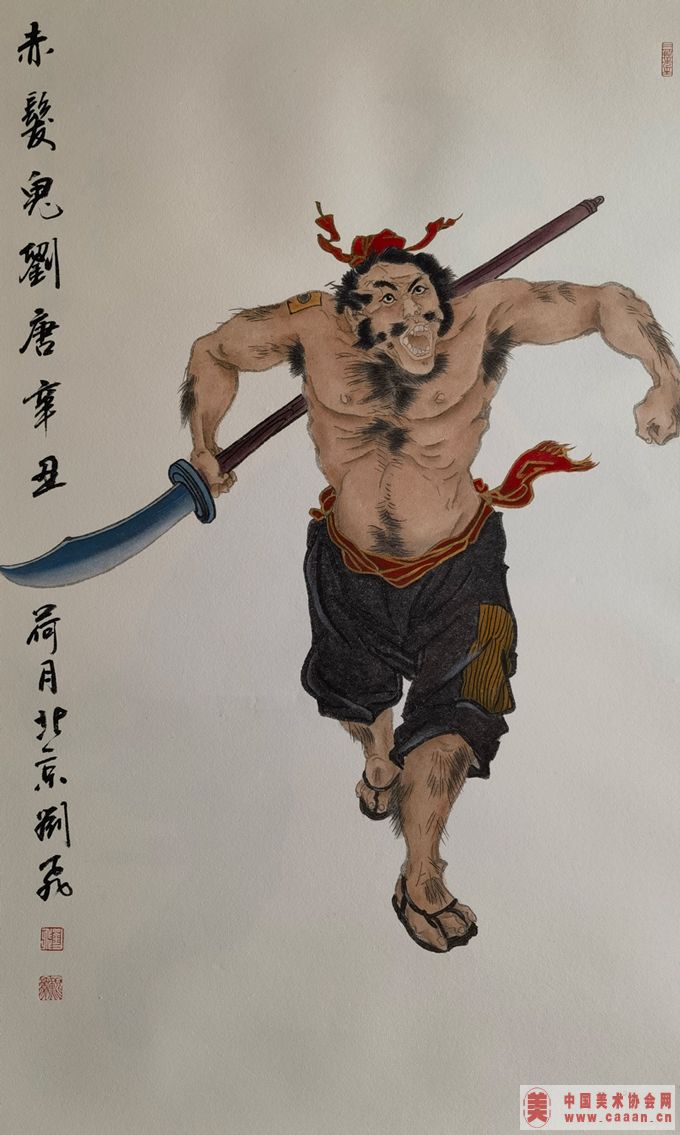 赤髮鬼劉唐辛丑
荷月北京劉飛
美 中国美术协会网
www.caaan.cn